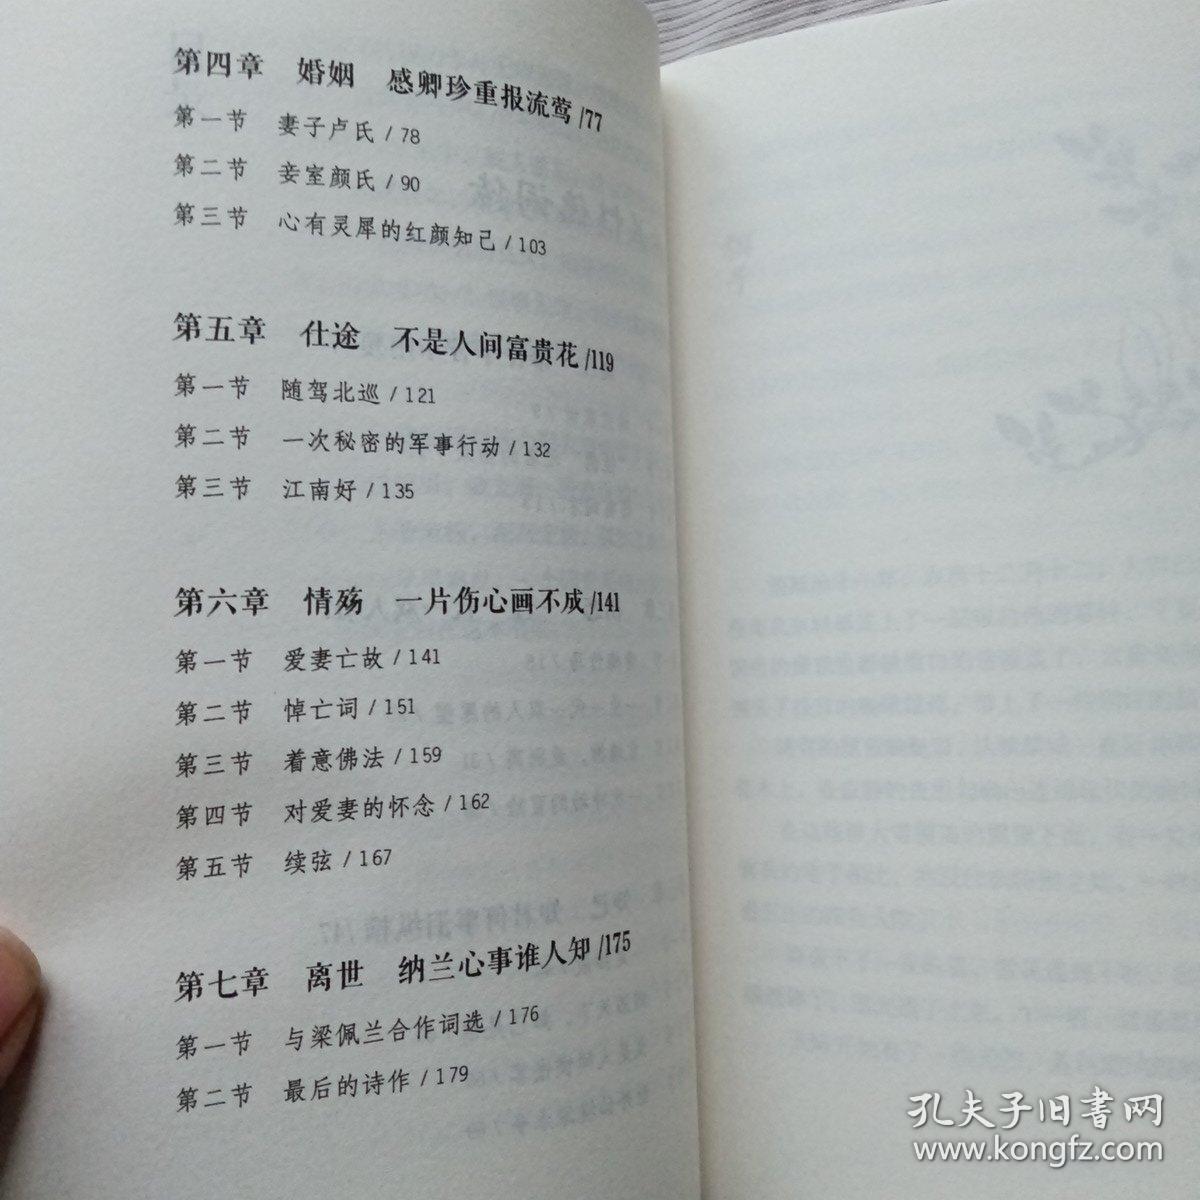 第四章 婚姻 感卿珍重报流莺/77
第一节 妻子卢氏/78
第二节 妾室颜氏/90
第三节 心有灵犀的红颜知己/103
第五章 仕途 不是人间富贵花/119
第一节 随驾北巡/121
第二节 一次秘密的军事行动/132
第三节 江南好/135
第六章 情殇 一片伤心画不成/141
第一节 爱妻亡故/141
第二节 悼亡词/151
第三节 着意佛法/159
第四节 对爱妻的怀念/162
第五节 续弦/167
第七章 离世 纳兰心事谁人知/175
第一节 与梁佩兰合作词选/176
第二节 最后的诗作/179
孔夫子旧书网
www.kongfz.com